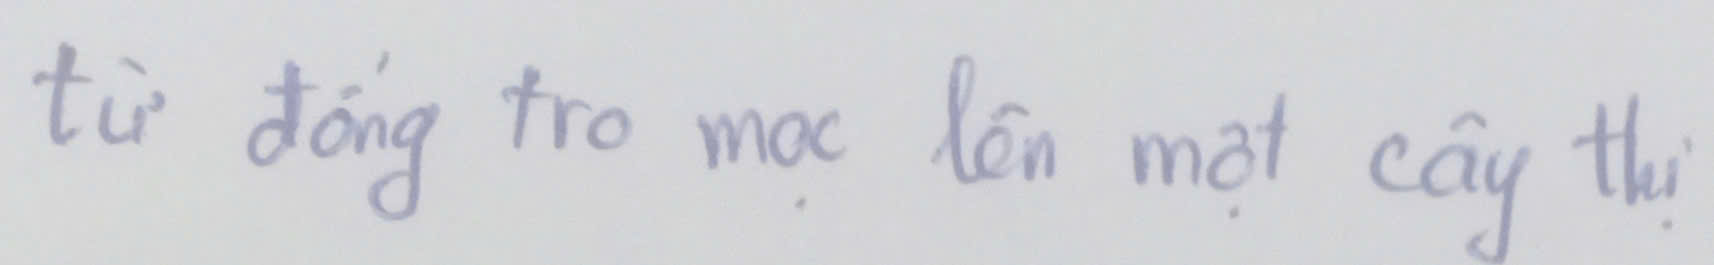 từ đống tro mọc lên một cây thị